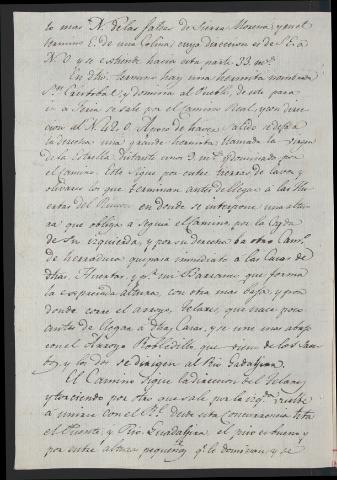 to mas N. de las faldas de Sierra Morena, y en el
termino E. de una Colina, cuya direccion es de S.E. á
N.O. y se estiende hacia esta parte 33 m.s
En dho. termino hay una hermita nombrada
S.n Cristobal, y domina al Pueblo, desde
ir á se sale por el Camino Real, y con direc
cion al N.42.O. A poco de haver salido se deja á
la derecha una grande hermita llamada la Virgen
de la Estrella distante unos 2 m.s y dominado por
el Camino. Este sigue por entre tierras de labor y
olivares los que terminan antes de llegar á las Hu
ertas del en donde se interpone una altu
ra que obliga á seguir el Camino por la Cañada
de su izquierda, y por su derecha va otro Cam.o
de herradura que pasa inmediato á las Casas de
dhas. Huertas, y p.r un Barranco que forma
la espresada altura con otra mas baja, y por
donde corre el arroyo, Telares, que nace poco
antes de llegar á dhas Casas, y se une mas abajo
con el Arroyo Robledillo que viene de los San
tos, y los dos se dirigen al Rio Guadajira.
El Camino sigue la direccion del Telares
y torciendo por otro que sale por la izq.da vuelve
á unirse con el R.l desde esta concurrencia hta
el Puente, y Rio Guadajira el piso es bueno, y
por entre alturas pequeñas q.e le dominan, y se